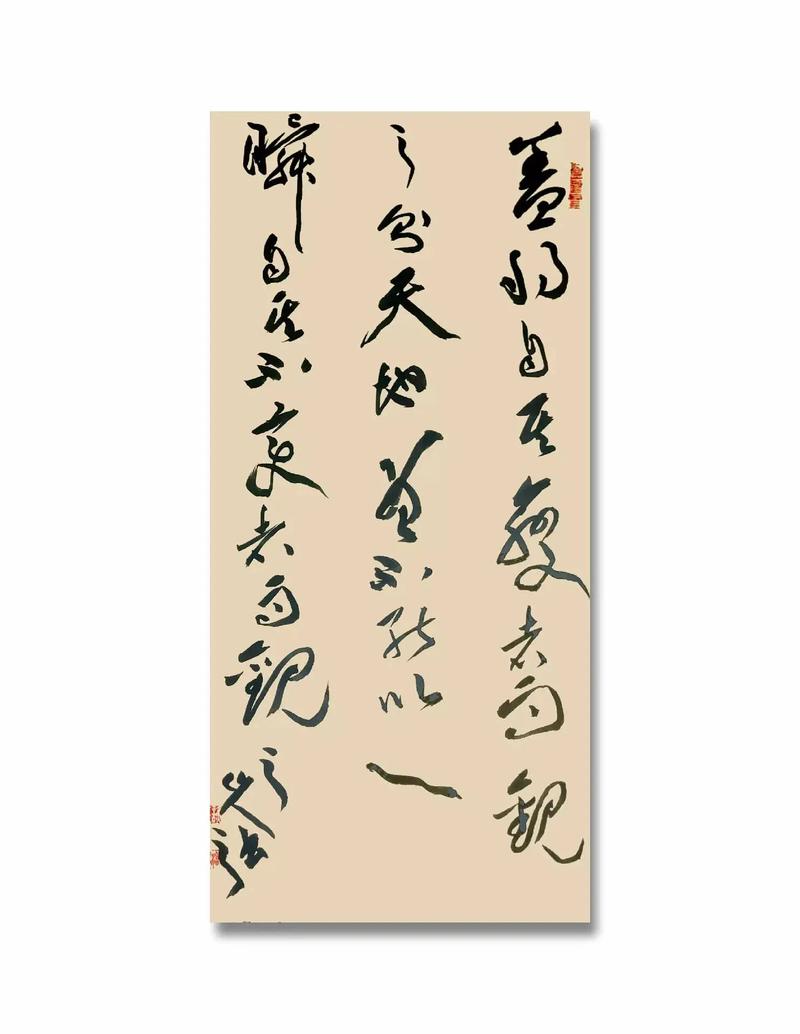 蓋將自其變者而觀
之则天地曾不能以一
瞬自其不变者而觀之